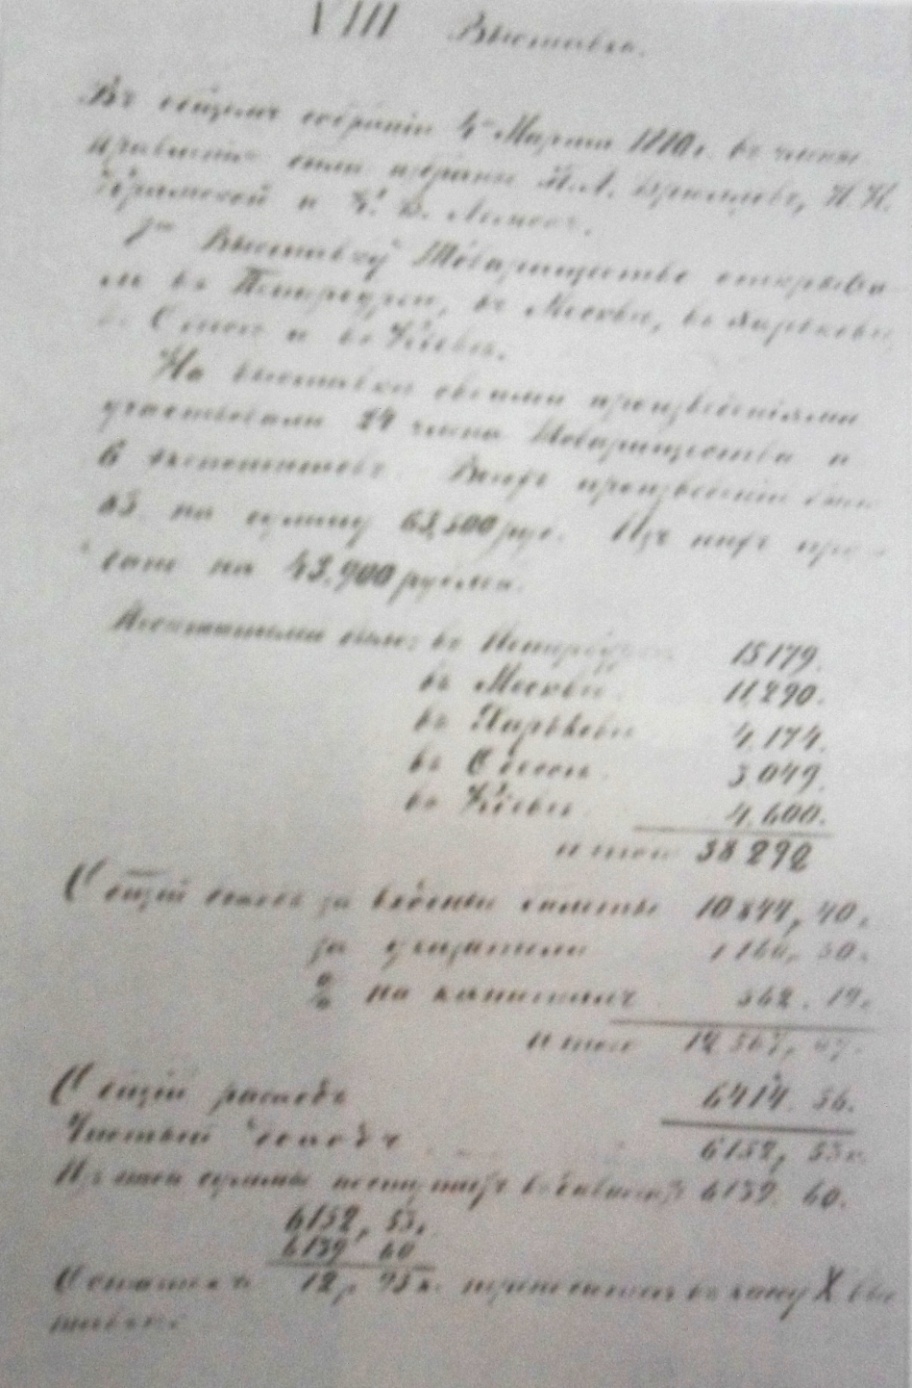 VIII Выставка.
Въ общемъ собраніи 4го Марта 1880 г. въ члены
правленія были избраны И. Н.
Крамской и К. В. Лемохъ.
Выставку Товарищество открыва-
ло въ Петербургѣ, въ Москвѣ, въ Харьковѣ,
въ Одессѣ и въ Кіевѣ.
На выставкѣ своими произведеніями
участвовали члена Товарищества и
6 экспонентовъ. Всѣхъ произведеній было
на сумму 63,500 руб. Изъ нихъ про-
дано на 43.900 рублей.
Посѣтителей было: въ Петербургѣ 15179.
въ Москвѣ 11,290.
въ Харьковѣ 4.174.
въ Одессѣ 3.049.
въ Кіевѣ 4.600.
итого 38292
Общій доходъ за входные билеты 10844, 40.
за указатели
% на капиталъ 562. 17.
итого 12567, 07.
Общій расходъ 6414. 56.
Чистый доходъ 6152, 53 к.
Изъ этой суммы 6139. 60.
6152, 53.
6139 60
Остатокъ 12, 93 к. въ кассу X вы-
ставки.